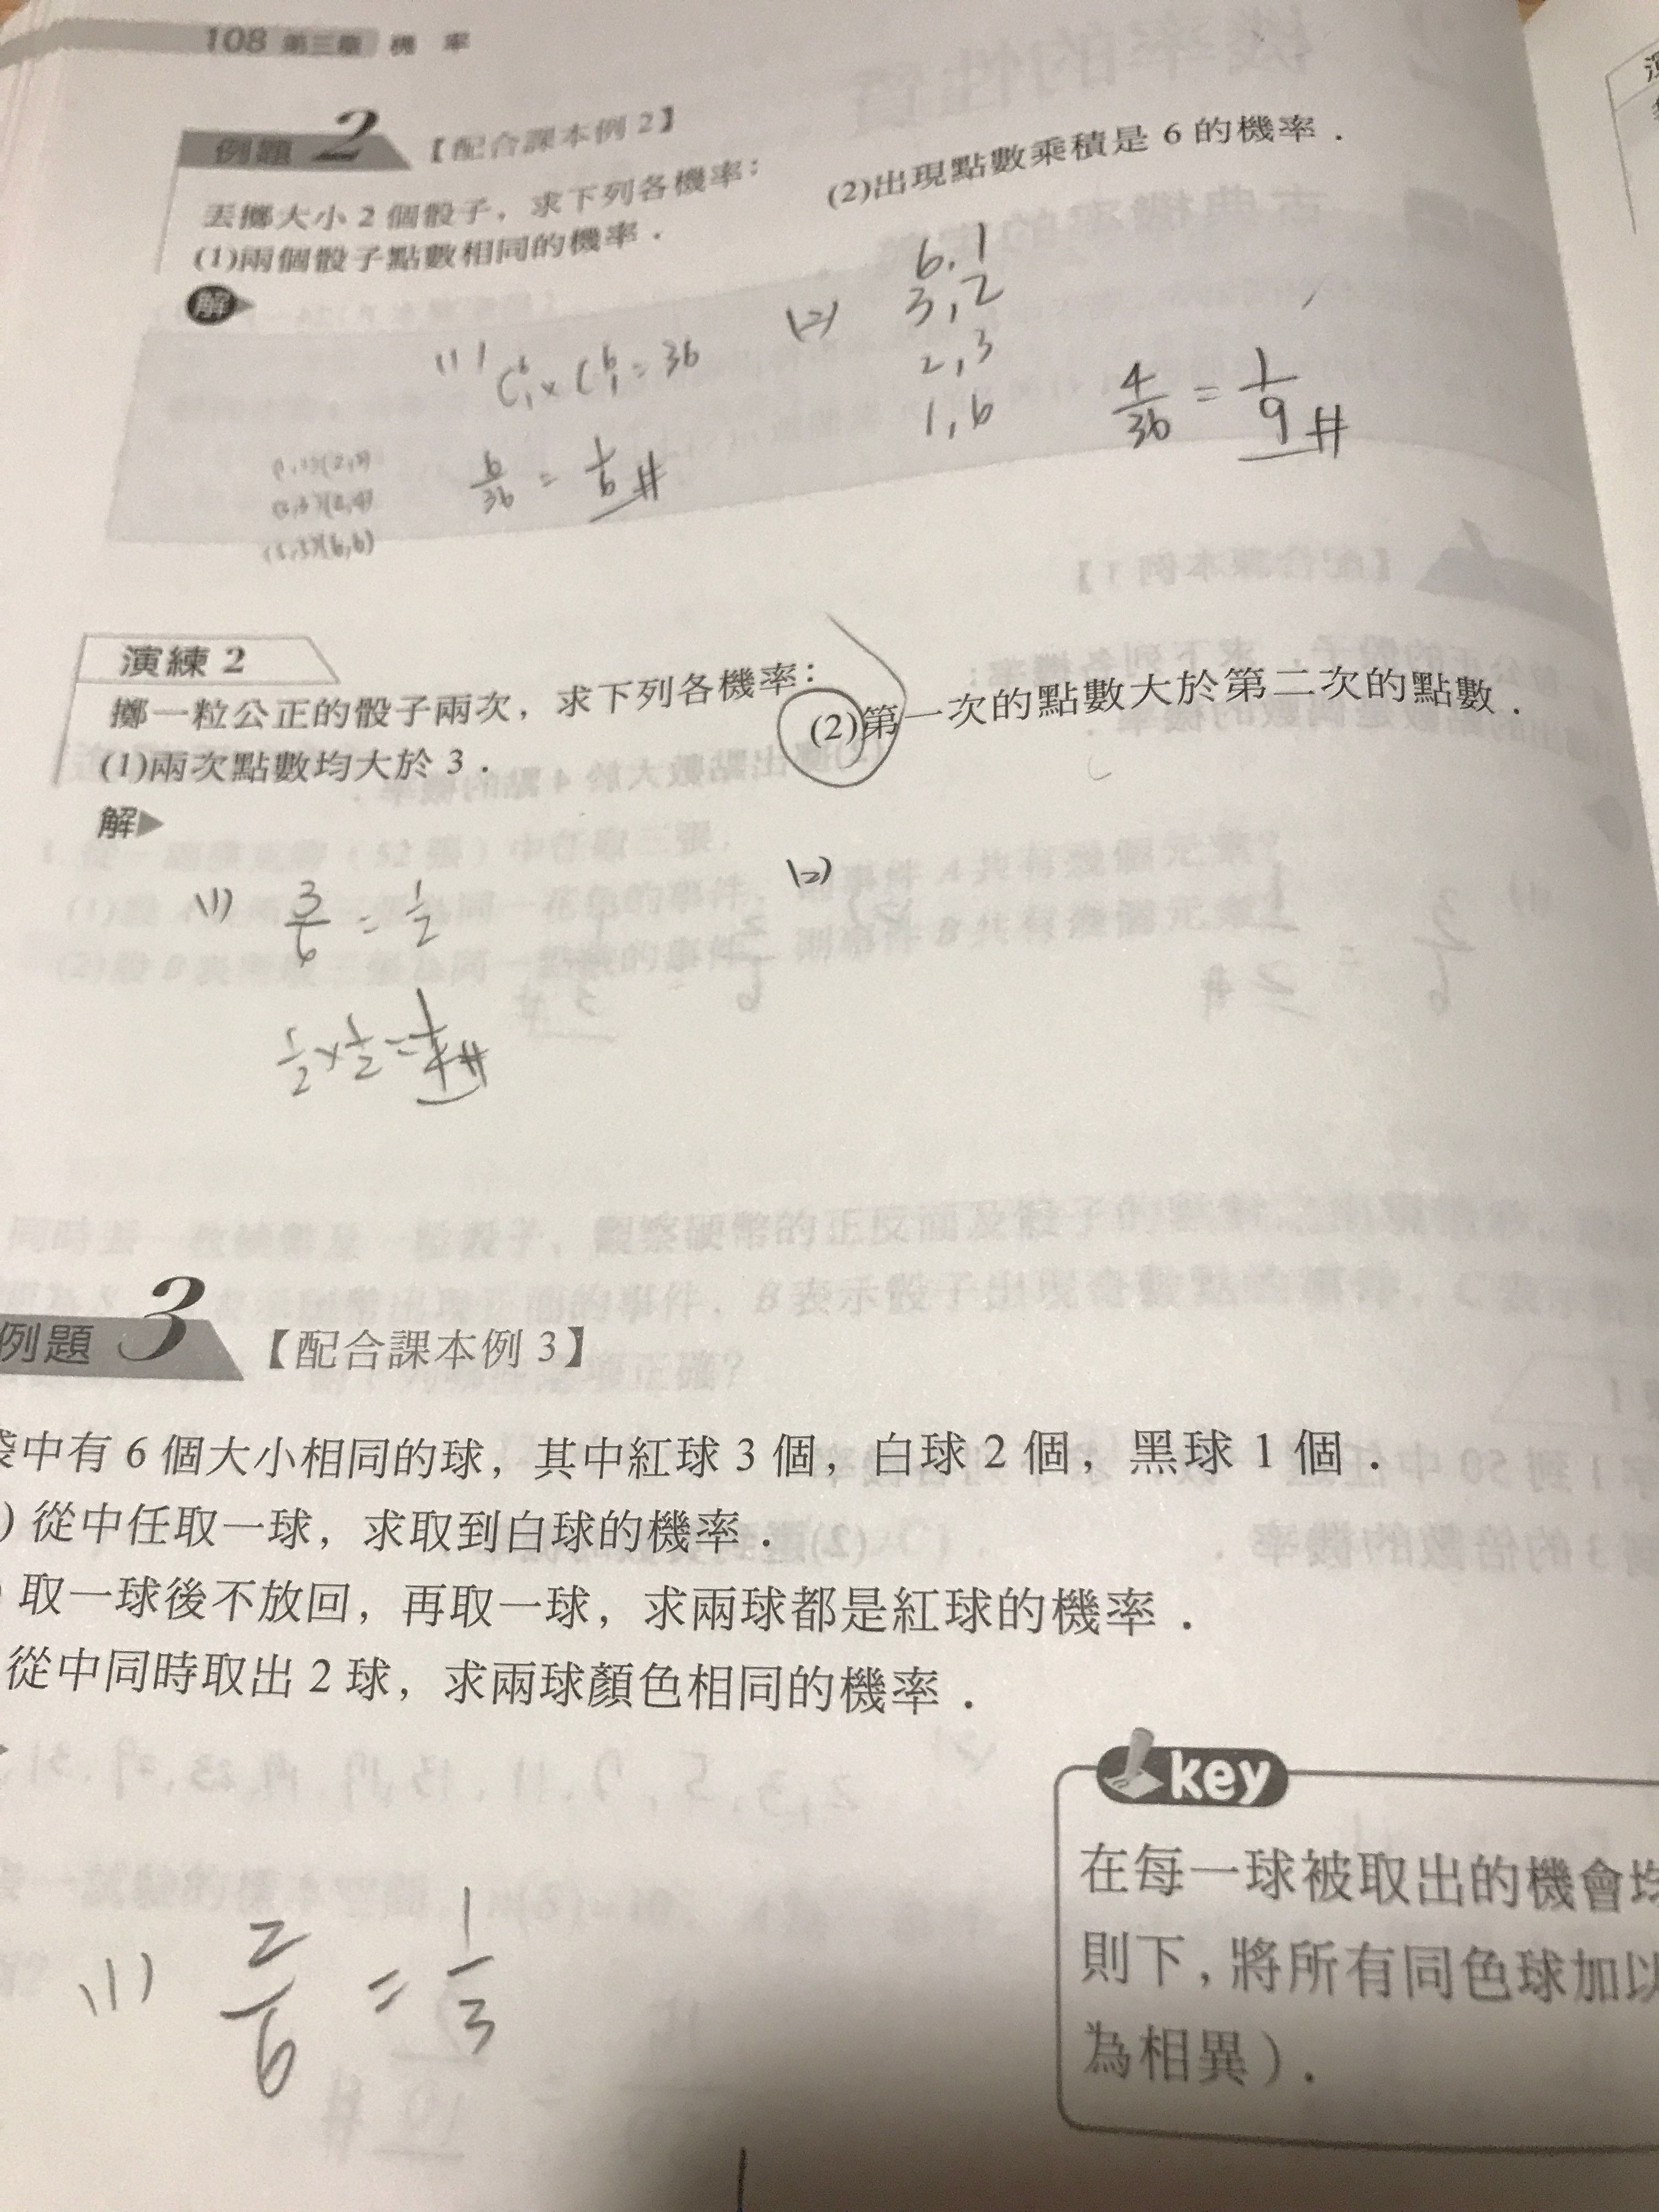 108 第三章 機 率
例題 2 【配合課本例 2】
丟擲大小 2 個骰子，求下列各機率：
(1)兩個骰子點數相同的機率．
(2)出現點數乘積是 6 的機率．
解
(1) C⁶₁×C⁶₁=36
6/36 = 1/6 #
(5,5)(6,6)
(2)
6.1
3,2
2,3
1,6
4/36 = 1/9 #
演練 2
擲一粒公正的骰子兩次，求下列各機率：
(1)兩次點數均大於 3．
(2)第一次的點數大於第二次的點數．
解
(1) 3/6 = 1/2
1/2×1/2=1/4 #
(2)
例題 3 【配合課本例 3】
袋中有 6 個大小相同的球，其中紅球 3 個，白球 2 個，黑球 1 個．
) 從中任取一球，求取到白球的機率．
) 取一球後不放回，再取一球，求兩球都是紅球的機率．
從中同時取出 2 球，求兩球顏色相同的機率．
(1) 2/6 = 1/3
key
在每一球被取出的機會均
則下，將所有同色球加以
為相異）．